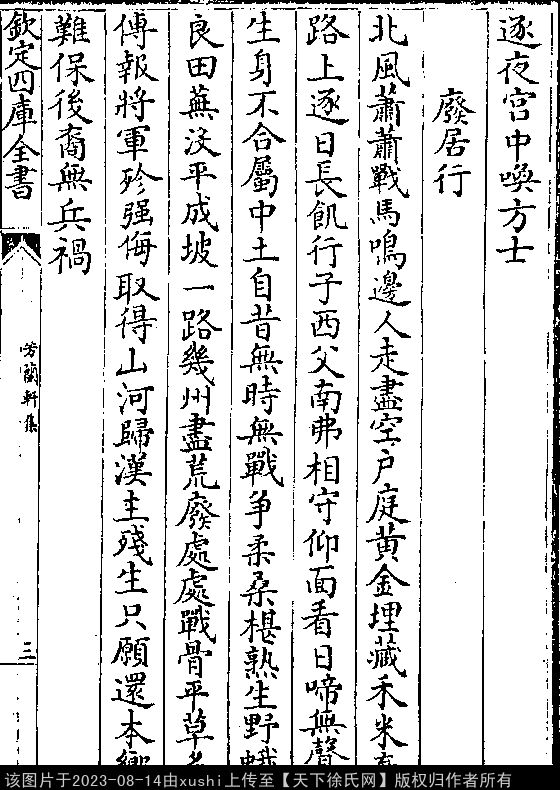 逐夜宫中喚方士
廢居行
北風蕭蕭戰馬鳴邊人走盡空户庭黄金埋藏禾米
路上逐日長飢行子西父南弗相守仰面看日啼無聲
生身不合屬中土自昔無時無戰争柔桑椹熟生野蛾
良田蕪没平成坡一路幾州盡荒廢處處戰骨平草
傳報將軍殄强侮取得山河歸漢主殘生只願還本鄉
難保後裔無兵禍
欽定四庫全書
芳蘭軒集
三
该图片于2023-08-14由xushi上传至【天下徐氏网】版权归作者所有